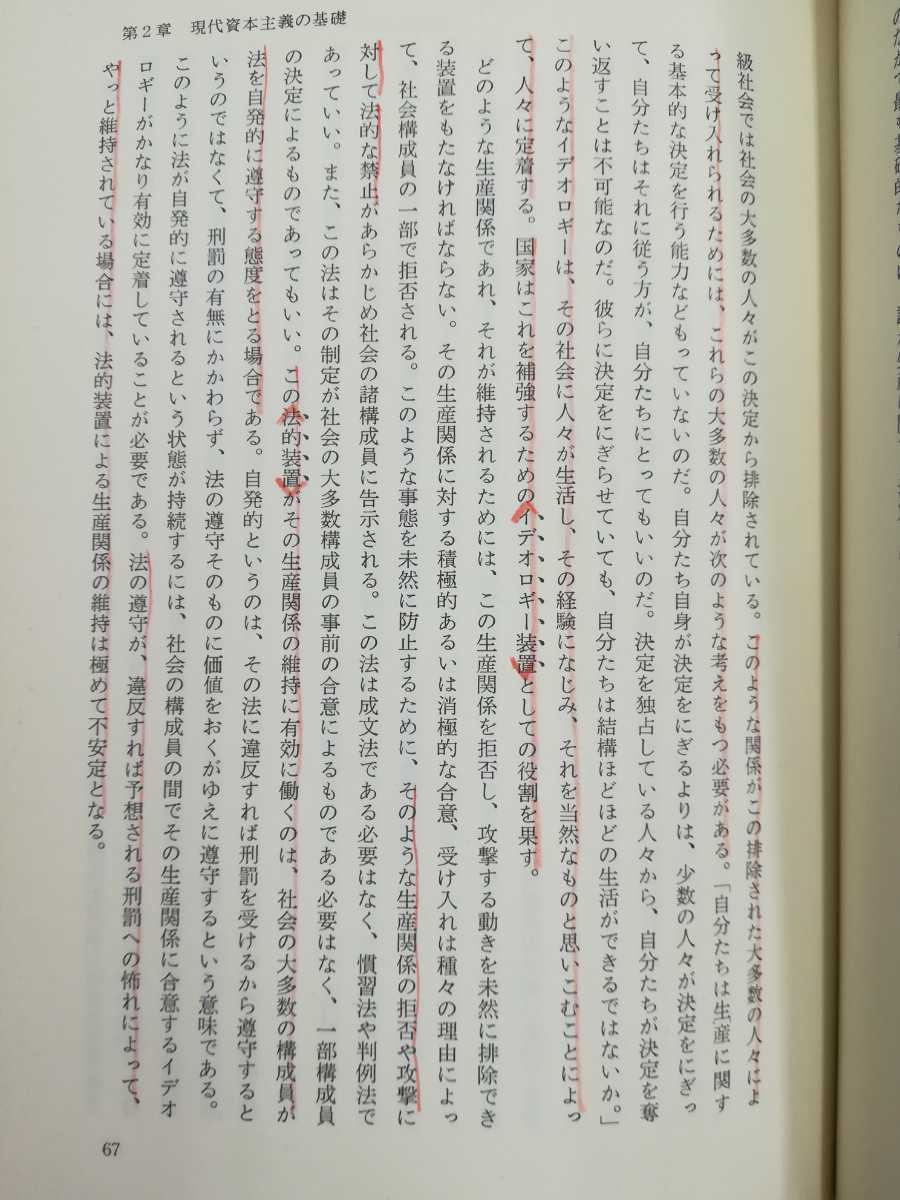 第2章 現代資本主義の基礎
級社会では社会の大多数の人々がこの決定から排除されている。このような関係がこの排除された大多数の人々によ
って受け入れられるためには、これらの大多数の人々が次のような考えをもつ必要がある。「自分たちは生産に関す
る基本的な決定を行う能力などもっていないのだ。自分たち自身が決定をにぎるよりは、少数の人々が決定をにぎっ
て、自分たちはそれに従う方が、自分たちにとってもいいのだ。決定を独占している人々から、自分たちが決定を奪
い返すことは不可能なのだ。彼らに決定をにぎらせていても、自分たちは結構ほどほどの生活ができるではないか。」
このようなイデオロギーは、その社会に人々が生活し、その経験になじみ、それを当然なものと思いこむことによっ
て、人々に定着する。国家はこれを補強するためのイデオロギー装置としての役割を果す。
どのような生産関係であれ、それが維持されるためには、この生産関係を拒否し、攻撃する動きを未然に排除でき
る装置をもたなければならない。その生産関係に対する積極的あるいは消極的な合意、受け入れは種々の理由によっ
て、社会構成員の一部で拒否される。このような事態を未然に防止するために、そのような生産関係の拒否や攻撃に
対して法的な禁止があらかじめ社会の諸構成員に告示される。この法は成文法である必要はなく、慣習法や判例法で
あっていい。また、この法はその制定が社会の大多数構成員の事前の合意によるものである必要はなく、一部構成員
の決定によるものであってもいい。この法的装置がその生産関係の維持に有効に働くのは、社会の大多数の構成員が
法を自発的に遵守する態度をとる場合である。自発的というのは、その法に違反すれば刑罰を受けるから遵守すると
いうのではなくて、刑罰の有無にかかわらず、法の遵守そのものに価値をおくがゆえに遵守するという意味である。
このように法が自発的に遵守されるという状態が持続するには、社会の構成員の間でその生産関係に合意するイデオ
ロギーがかなり有効に定着していることが必要である。法の遵守が、違反すれば予想される刑罰への怖れによって、
やっと維持されている場合には、法的装置による生産関係の維持は極めて不安定となる。
67